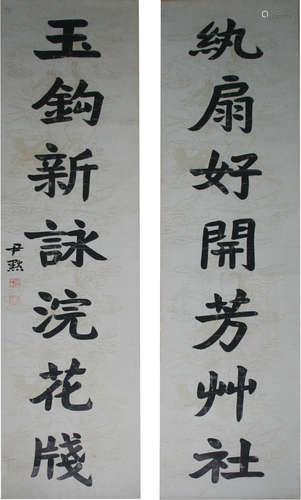 紈扇好開芳艸社
玉鈎新詠浣花牋
尹默